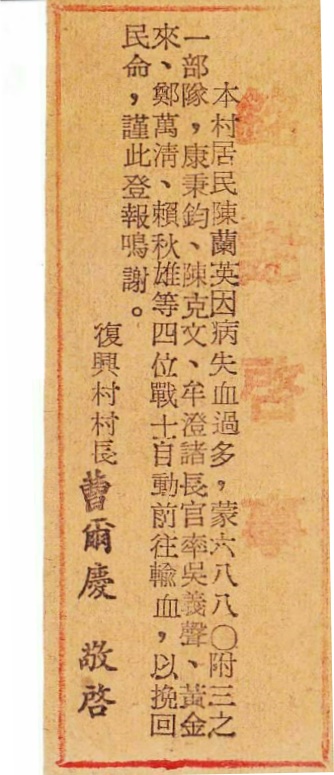 啓事
本村居民陳蘭英因病失血過多，蒙六八八〇附三之
一部隊，康秉鈞、陳克文、牟澄諸長官率吳義聲、黃金
來、鄭萬清、賴秋雄等四位戰士自動前往輸血，以挽回
民命，謹此登報鳴謝。
復興村村長曹爾慶 敬啓